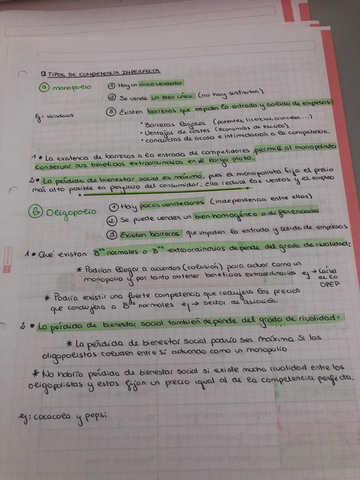 TIPOS DE COMPETENCIA IMPERFECTA
a) monopolio
① Hay un único vendedor
② Se vende un bien único (no hay sustitutos)
Ej: Windows
③ Existen barreras que impiden la entrada y salida de empresas
· Barreras legales (patentes, licencias, ...)
· Ventajas de costes (economías de escala)
· conductas de acoso e intimidación a la competencia.
1 • La existencia de barreras a la entrada de competidores permite al monopolista
conservar sus beneficios extraordinarios en el largo plazo.
2 • La pérdida de bienestar social es máxima, pues el monopolista fija el precio
más alto posible en perjuicio del consumidor. Ella reduce las ventas y el empleo
b) Oligopolio
① Hay pocos vendedores (independencia entre ellos)
② Se puede venden un bien homogéneo o diferenciado
③ Existen barreras que impiden la entrada y salida de empresas
1 • Que existan Bos normales o Bos extraordinarios depende del grado de rivalidad;
* Podrían llegar a acuerdos (colusión) para actuar como un
monopolio y por tanto obtener beneficios extraordinarios ej → Cartel
de la
OPEP
* Podría existir una fuerte competencia que redujera los precios
que condujera a Bos normales ej → sector de aviación.
2 • La pérdida de bienestar social también depende del grado de rivalidad.
* La pérdida de bienestar social podría ser máxima si los
oligopolistas coluden entre sí actuando como un monopolio
* No habría pérdida de bienestar social si existe mucha rivalidad entre los
oligopolistas y estos fijan un precio igual al de la competencia perfecta.
ej: cocacola y pepsi